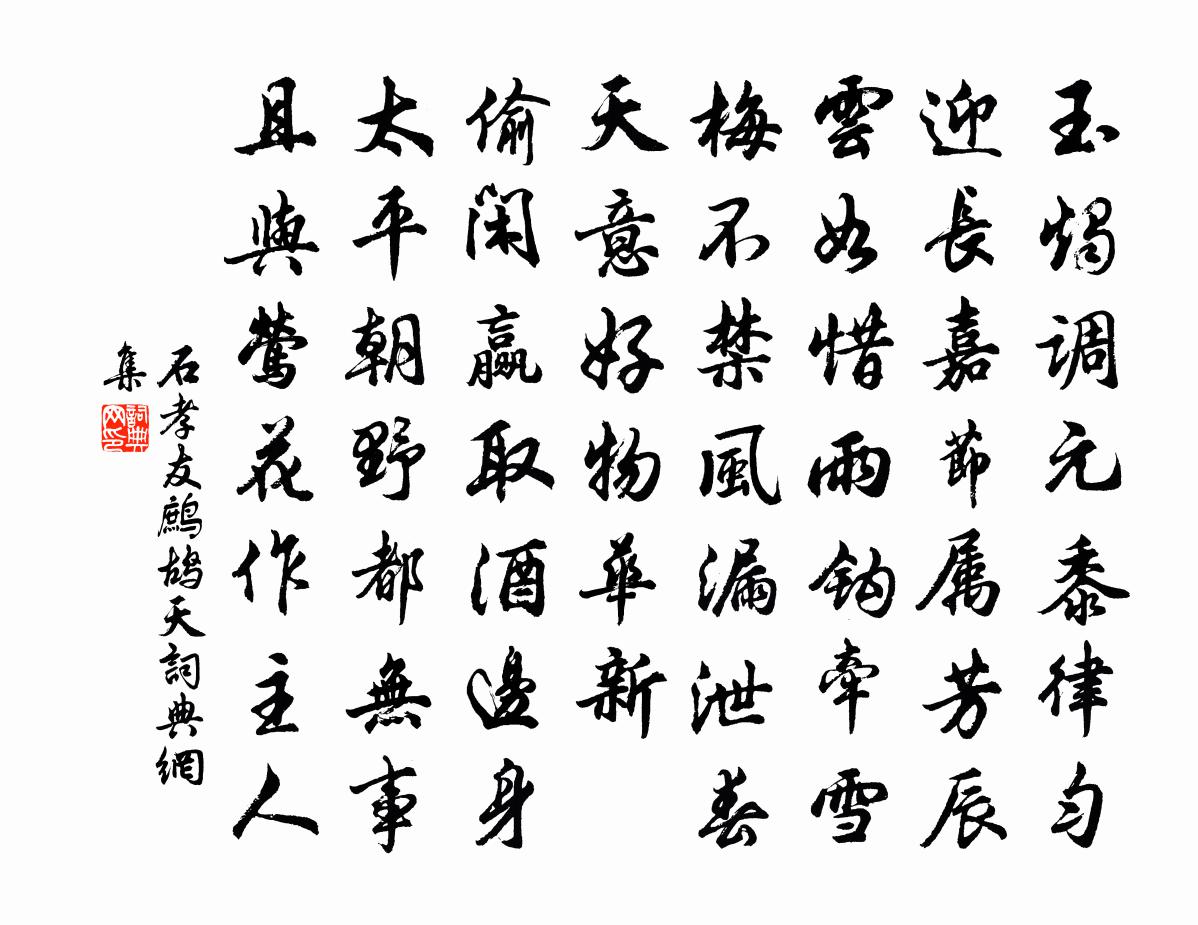 玉燭调元黍律匀
迎長嘉節属芳辰
雲如惜雨鈎牽雪
梅不禁風漏泄春
天意好物華新
偷閑贏取酒邊身
太平朝野都無事
且與鶯花作主人
石孝友鷓鴣天詞典網
集
詞典网印